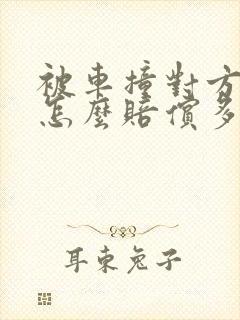 被車撞對方
怎麼賠償多
耳東兔子